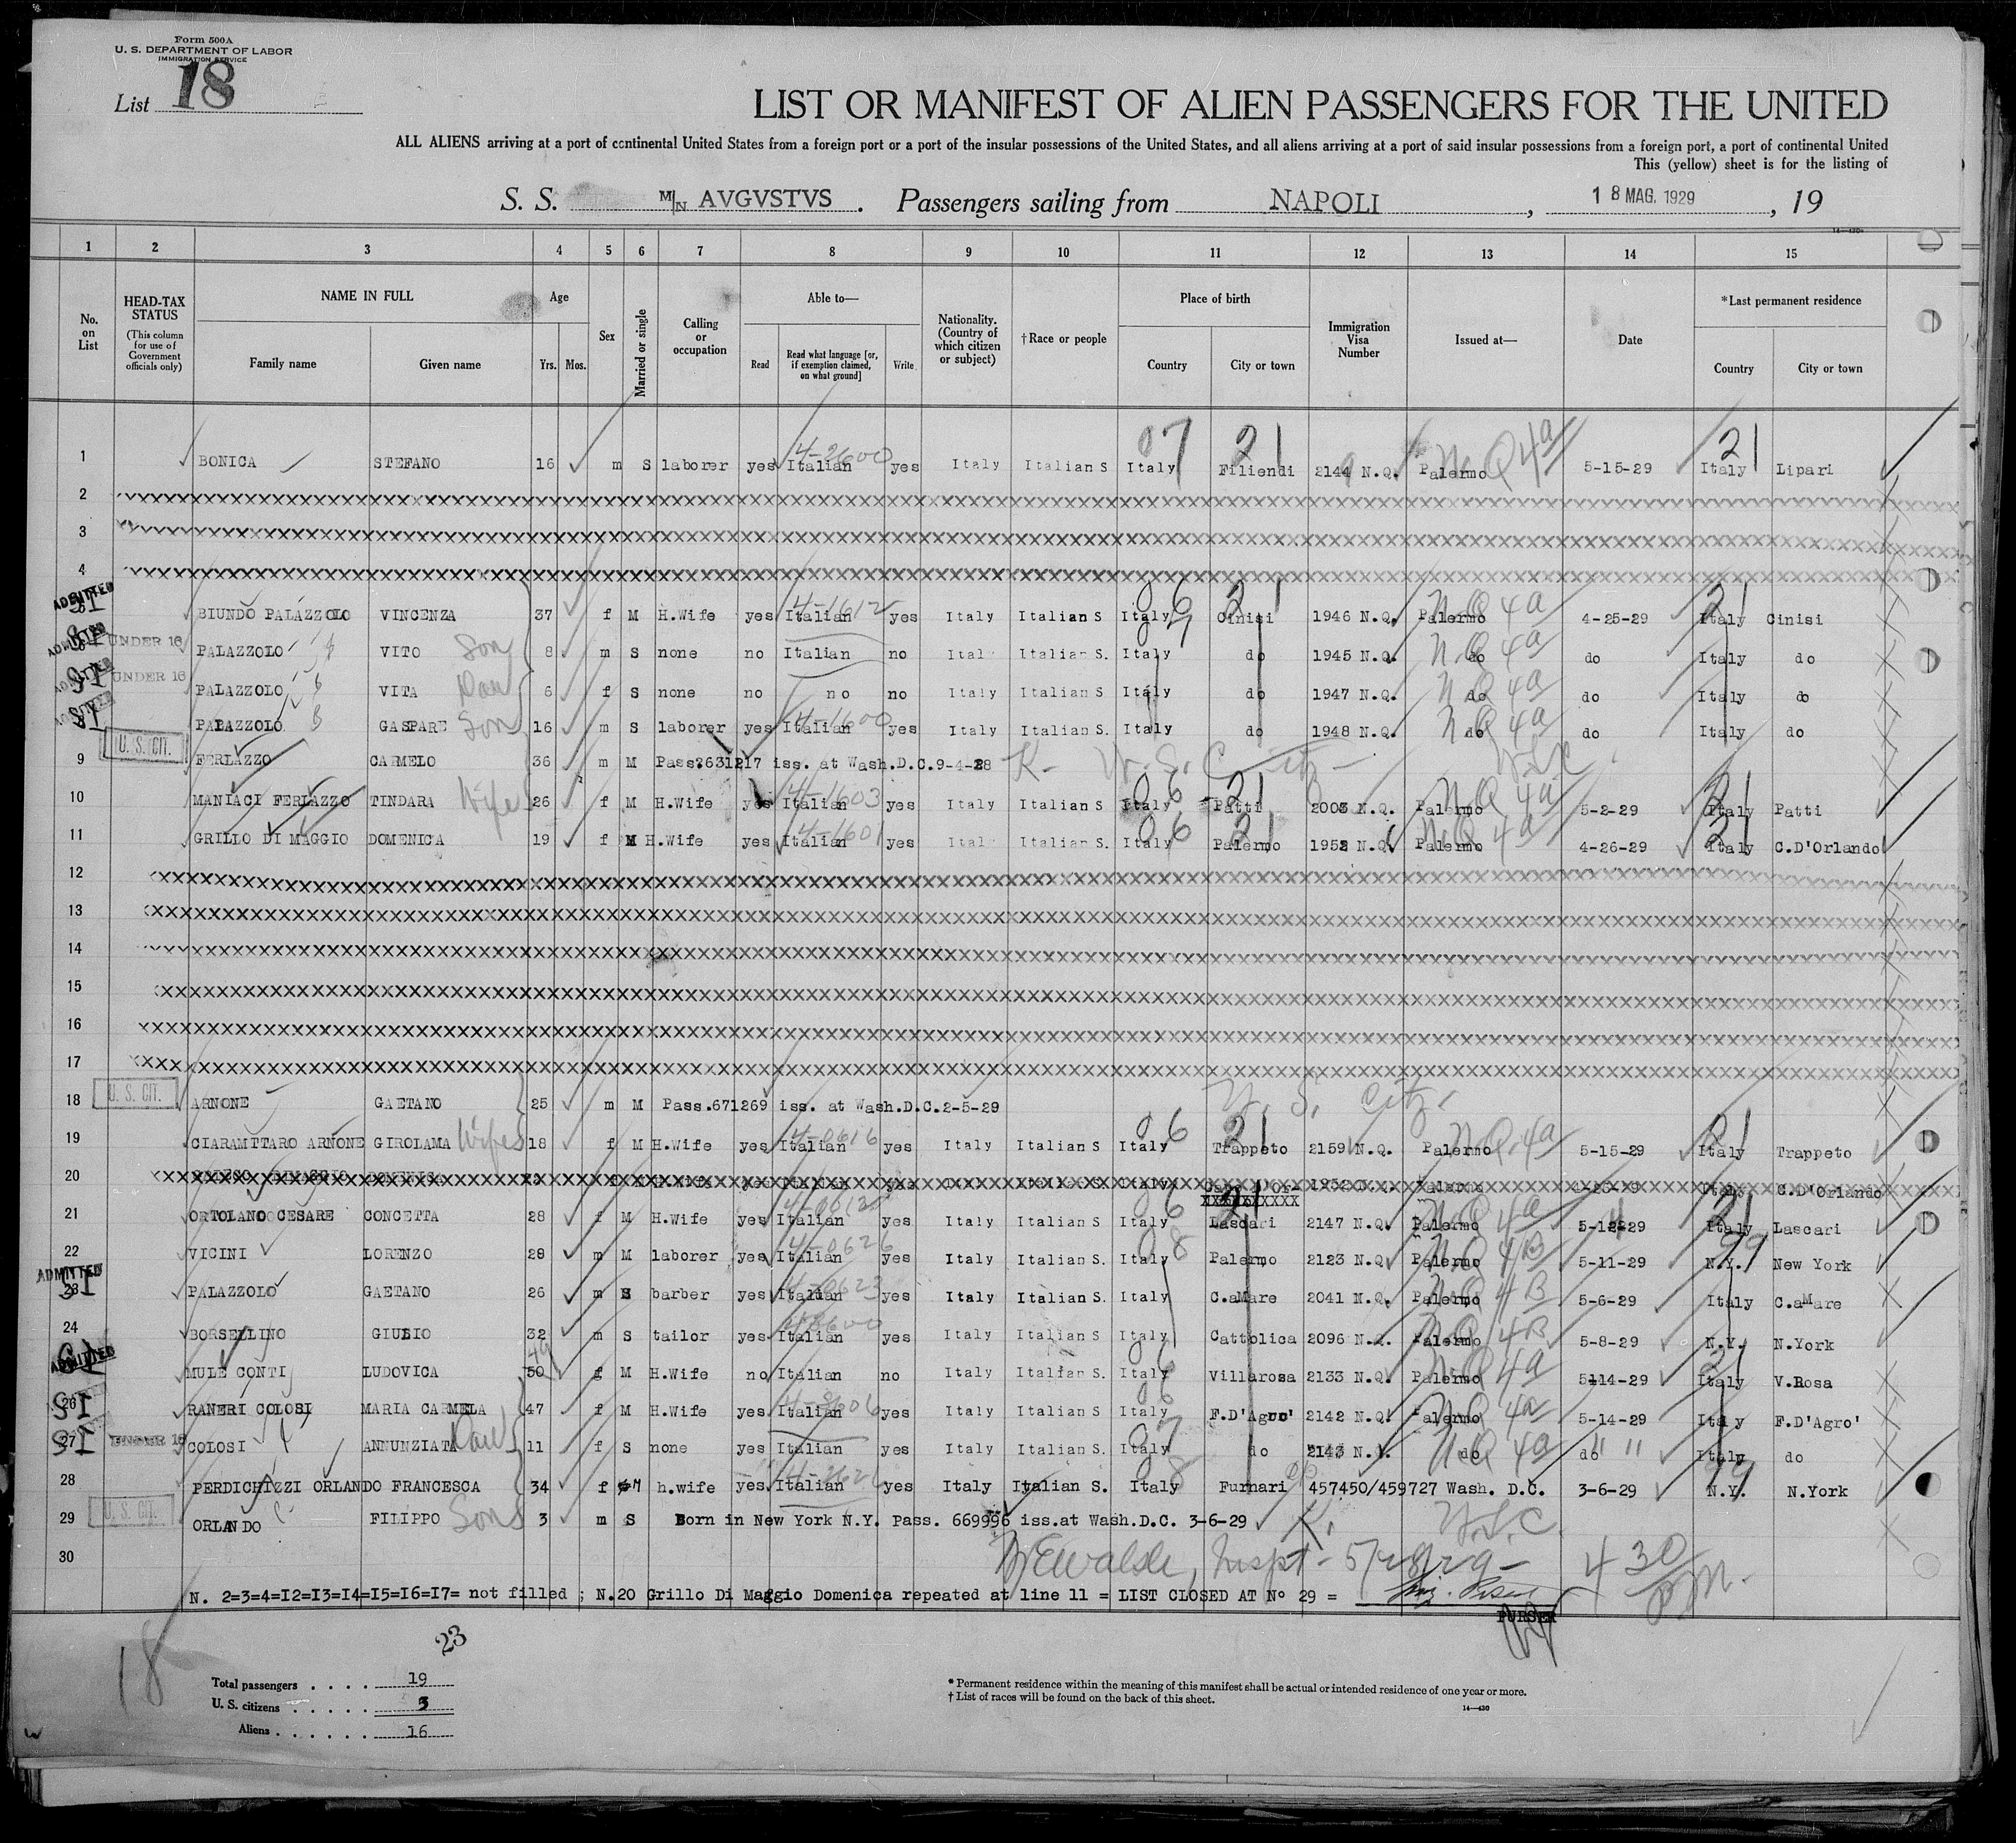 Form 500A
U. S. DEPARTMENT OF LABOR
IMMIGRATION SERVICE
List 18
LIST OR MANIFEST OF ALIEN PASSENGERS FOR THE UNITED
ALL ALIENS arriving at a port of continental United States from a foreign port or a port of the insular possessions of the United States, and all aliens arriving at a port of said insular possessions from a foreign port, a port of continental United
This (yellow) sheet is for the listing of
S. S. M/N AVGVSTVS . Passengers sailing from NAPOLI , 18 MAG. 1929 , 19
14—430
1 2 3 4 5 6 7 8 9 10 11 12 13 14 15
No. on List
HEAD-TAX STATUS
(This column for use of Government officials only)
NAME IN FULL
Family name Given name
Age
Yrs. Mos.
Sex
Married or single
Calling or occupation
Able to—
Read
Read what language [or, if exemption claimed, on what ground]
Write
Nationality. (Country of which citizen or subject)
†Race or people
Place of birth
Country City or town
Immigration Visa Number
Issued at—
Date
*Last permanent residence
Country City or town
1 BONICA STEFANO 16 m S laborer yes 4-2600 Italian yes Italy Italian S Italy 07 Filiendi 21 2144 N.Q. Palermo N.Q 4a 5-15-29 Italy 21 Lipari
2
3
4
ADMITTED SI BIUNDO PALAZZOLO VINCENZA 37 f M H.Wife yes 4-1612 Italian yes Italy Italian S Italy 06 Cinisi 21 1946 N.Q. Palermo N.Q 4a 4-25-29 Italy 21 Cinisi
ADMITTED SI UNDER 16 PALAZZOLO VITO Son 8 m S none no Italian no Italy Italian S. Italy do 1945 N.Q. do N.Q 4a do Italy do
ADMITTED SI UNDER 16 PALAZZOLO VITA Dau 6 f S none no no no Italy Italian S Italy do 1947 N.Q. do N.Q 4a do Italy do
ADMITTED SI PALAZZOLO GASPARE Son 16 m S laborer yes 4-1600 Italian yes Italy Italian S. Italy do 1948 N.Q. do N.Q 4a do Italy do
9 U. S. CIT. FERLAZZO CARMELO 36 m M Pass.631217 iss. at Wash.D.C.9-4-28 K- U.S. Citz- U.S.C.
10 MANIACI FERLAZZO TINDARA Wife 26 f M H.Wife yes 4-1603 Italian yes Italy Italian S Italy 06 Patti 21 2003 N.Q. Palermo N.Q 4a 5-2-29 Italy 21 Patti
11 GRILLO DI MAGGIO DOMENICA 19 f M H.Wife yes 4-1601 Italian yes Italy Italian S. Italy 06 Palermo 21 1952 N.Q. Palermo N.Q 4a 4-26-29 Italy 21 C.D'Orlando
12
13
14
15
16
17
18 U. S. CIT. ARNONE GAETANO 25 m M Pass.671269 iss. at Wash.D.C.2-5-29 U. S. Citz.
19 CIARAMITARO ARNONE GIROLAMA Wife 18 f M H.Wife yes 4-0616 Italian yes Italy Italian S Italy 06 Trappeto 21 2159 N.Q. Palermo N.Q.4a 5-15-29 Italy 21 Trappeto
20 C.D'Orlando
21 ORTOLANO CESARE CONCETTA 28 f M H.Wife yes Italian yes Italy Italian S Italy 06 Lascari 21 2147 N.Q. Palermo N.Q 4a Italy 21 Lascari
22 VICINI LORENZO 28 m M laborer yes 4-0626 Italian yes Italy Italian S. Italy 08 Palermo 2123 N.Q. Palermo N.Q 4B 5-11-29 N.Y. 99 New York
ADMITTED 23 SI PALAZZOLO GAETANO 26 m S barber yes 4-0623 Italian yes Italy Italian S. Italy C.aMare 2041 N.Q. Palermo N.Q 4B 5-6-29 Italy C.aMare
24 BORSELLINO GIULIO 32 m S tailor yes Italian yes Italy Italian S Italy Cattolica 2096 N.Q. Palermo N.Q 4B 5-8-29 N.Y. N.York
ADMITTED MULE CONTI LUDOVICA 50 f M H.Wife no Italian no Italy Italian S. Italy 06 Villarosa 2133 N.Q. Palermo N.Q 4a 5-14-29 Italy 21 V.Rosa
26 SI RANERI COLOSI MARIA CARMELA 47 f M H.Wife yes Italian yes Italy Italian S Italy 06 F.D'Agro' 2142 N.Q. Palermo N.Q 4a 5-14-29 Italy F.D'Agro'
27 SI UNDER 16 COLOSI ANNUNZIATA Dau 11 f S none yes Italian yes Italy Italian S. Italy 07 do 2143 N.Q. do N.Q 4a do " " Italy do
28 PERDICHIZZI ORLANDO FRANCESCA 34 f M h.wife yes Italian yes Italy Italian S. Italy 08 Furnari 457450/459727 Wash. D.C. 3-6-29 N.Y. 99 N.York
29 U. S. CIT. ORLANDO FILIPPO Son 3 m S Born in New York N.Y. Pass. 669996 iss.at Wash.D.C. 3-6-29 K. U.S.C.
30 Inspt- 5/28/29- 4 30 P.M.
N. 2=3=4=I2=I3=I4=I5=I6=I7= not filled ; N.20 Grillo Di Maggio Domenica repeated at line 11 = LIST CLOSED AT Nº 29 =
PURSER
18
23
Total passengers . . . . 19
U. S. citizens . . . . . 3
Aliens . . . . . . 16
* Permanent residence within the meaning of this manifest shall be actual or intended residence of one year or more.
† List of races will be found on the back of this sheet.
14—430